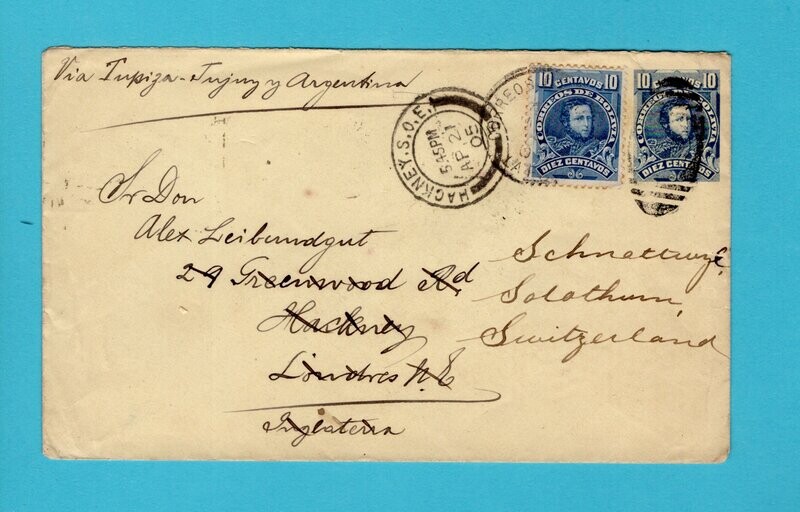 Via Tupiza-Jujuy y Argentina
HACKNEY.S.O.E.
5.45PM
AP 21
05
CORREOS
10 CENTAVOS 10
CORREOS DE BOLIVIA
DIEZ CENTAVOS
10 CENTAVOS 10
CORREOS DE BOLIVIA
DIEZ CENTAVOS
Sr Don
Alex Leibundgut
29 Greenwood Rd
Hackney
Londres N.E
Inglaterra
Solothurn,
Switzerland